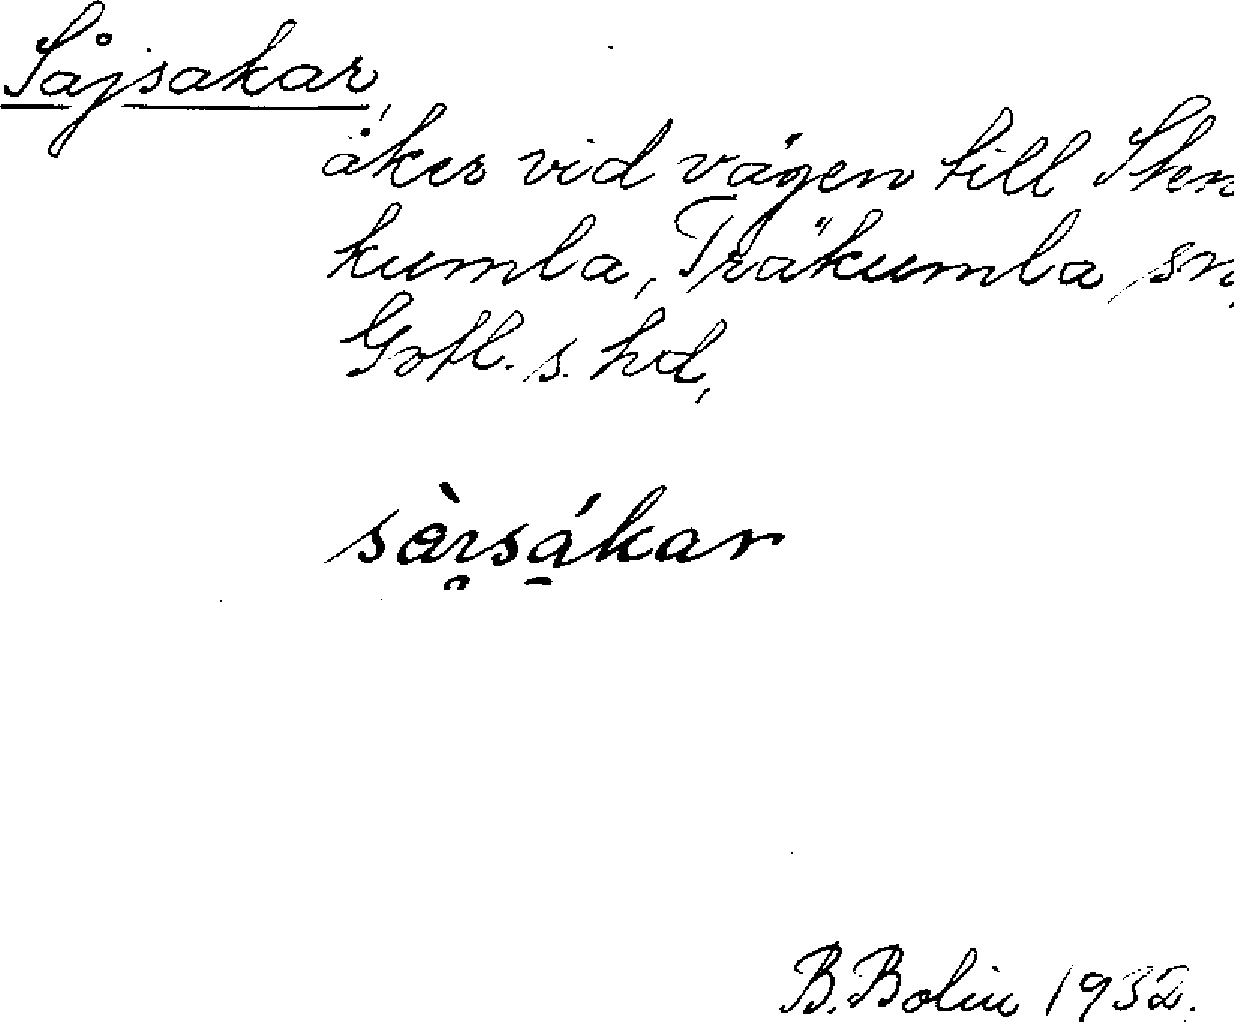 Såjsakar,
åker vid vägen till Sten
kumla, Träkumla sn,
Gotl. s. hd,
B. Bolin 1932.